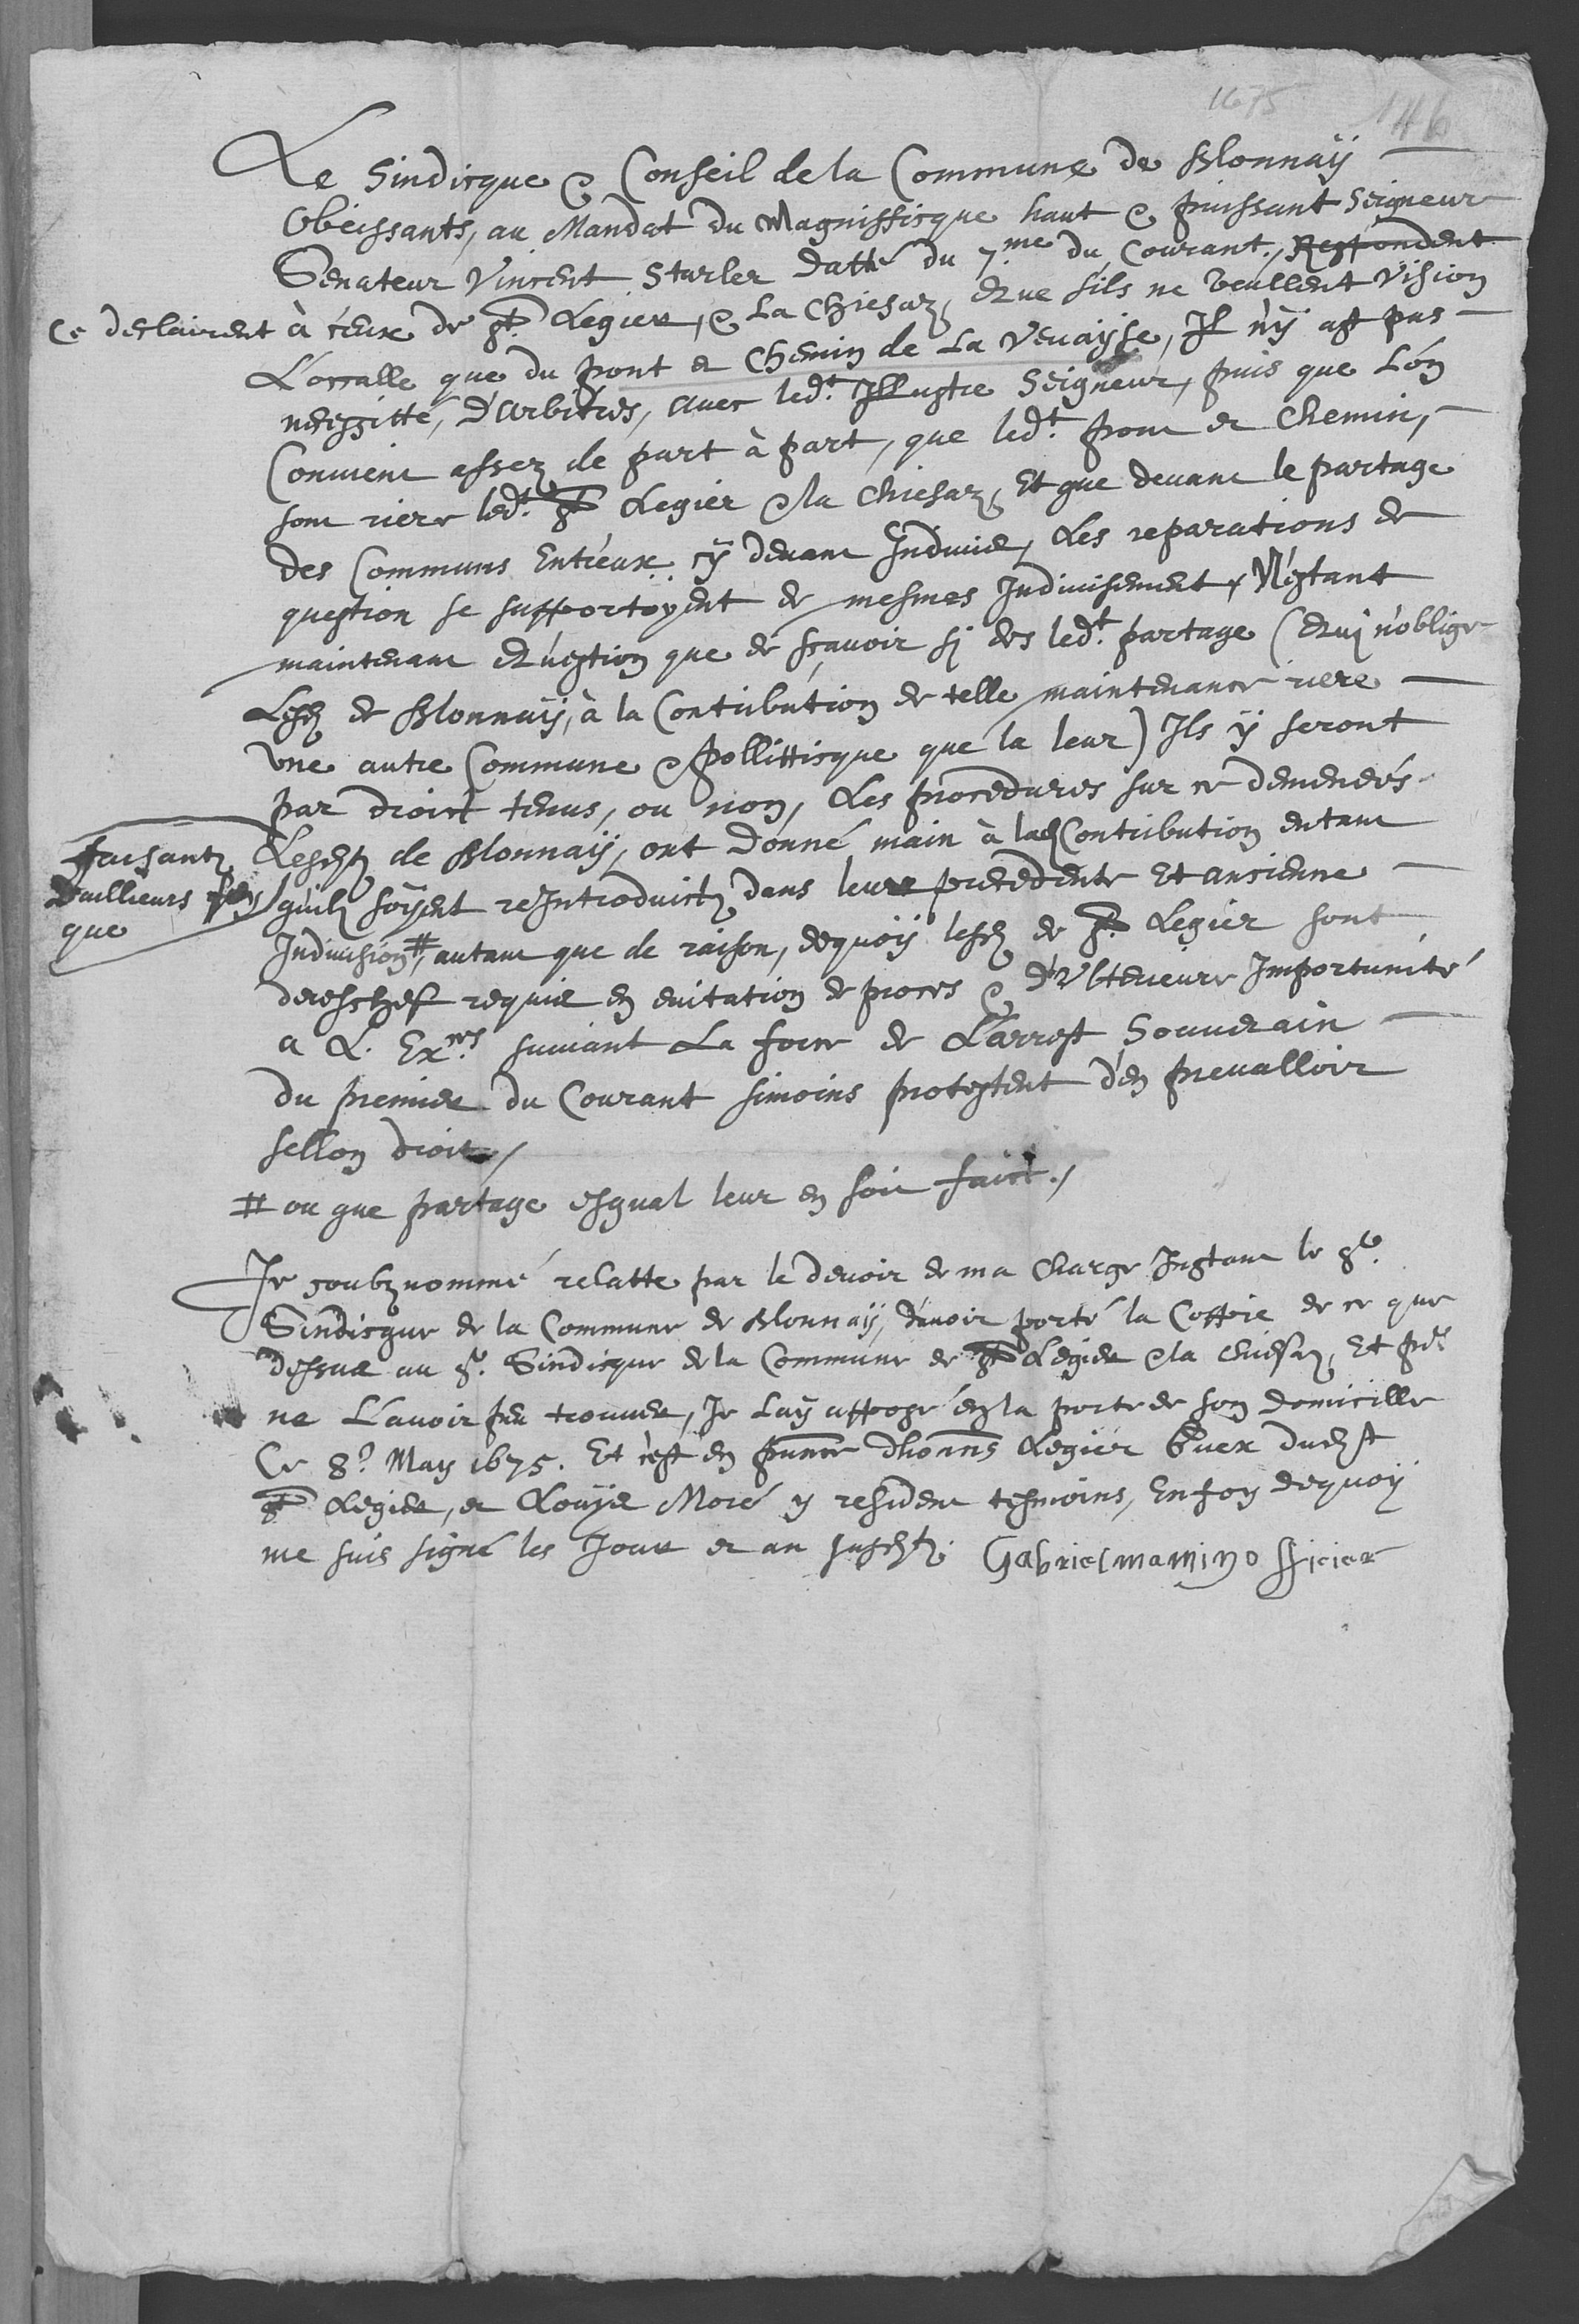 1675 146
Le Sindicque & Conseil de la Commune de Blonnaÿ
Obeissants, au Mandat du Magniffique haut & puissant Seigneur
Senateur Vincent Sturler datté du 7.me du Courant, Respondent
Ce desclairent à ceux de St. Legier, & La Chiesaz, que sils ne veullent Vision
Localle que du pont et Chemin de La Veuaÿse, Il n'ÿ ast pas
necessitté, D'arbitres, auec led.t Illustre Seigneur, puis que L'on
Conuient assez de part à part, que led.t pont et Chemin,
sont riere led.t St Legier & la Chiesaz, Et que deuant le partage
des Communs Entreux cÿ deuant Indiuis, Les reparations de
question se supportoÿent de mesmes Indiuisement, N'estant
maintenant question que de sçauoir si des led.t partage (qui n'oblige
Lesd de Blonnaÿ, à la Contribution de telle maintenance riere
vne autre Commune & pollitticque que la leur) Ils ÿ seront
par droict tenus, ou non, Les procedures sur ce demenées
faisantz
dailleurs
que
Lesdts de Blonnaÿ, ont donné main à lad Contribution entant
quilz soÿent reIntroduictz dans leur precedente Et ancienne
Indiuision #, autant que de raison, dequoÿ lesd de St Legier sont
dereschef requis en euitation de proces & d'Vlterieure Importunité
a L. Ex.ces suiuant La force de L'arrest Souuerain
du premier du Courant simoins protestent d'en preualloir
sellon droit,
# ou que partage esgual leur en soit faict.,
Je soubznommé relatte par le deuoir de ma Charge Instant le Sr.
Sindicque de la Commune de Blonnaÿ, d'auoir porté la Coppie de ce que
dessus au Sr. Sindicque de la Commune de St Legier & la Chiesaz, Et
ne L'auoir peu trouuer, Je Laÿ apposé en la porte de son domicille
Ce 8.e Maÿ 1675. Et c'est en pnnce dhonns Legier Guex dudst
St Legier, et Louÿs Moré y resident tesmoins, En foy dequoÿ
me suis signé les Jour et an susdts. Gabriel mamin officier